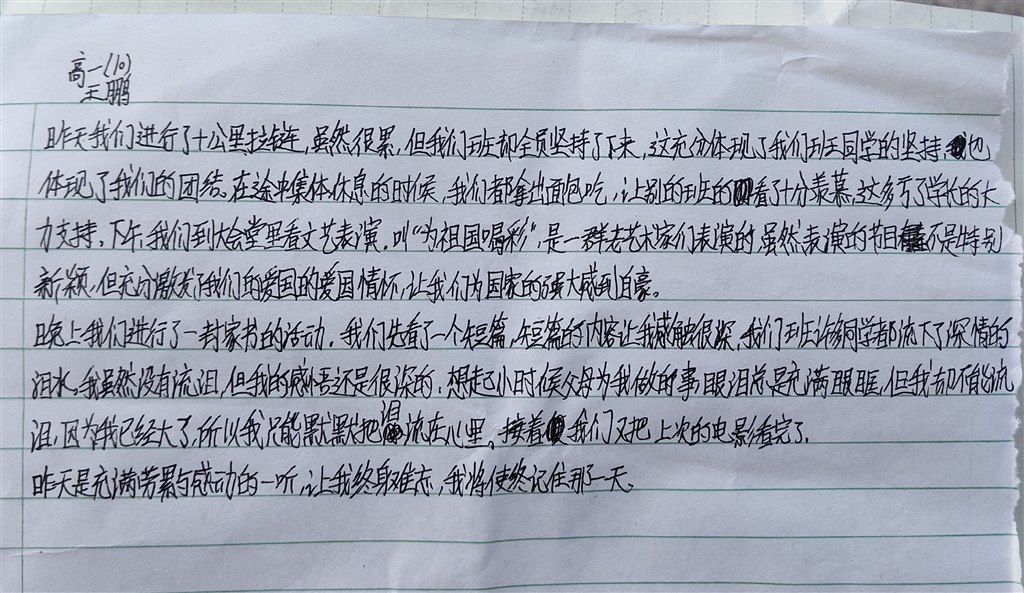 高一(10)
王鹏
昨天我们进行了十公里拉链,虽然很累,但我们班却全员坚持了下来,这充分体现了我们班同学的坚持,也
体现了我们的团结。在途中集体休息的时候,我们都拿出面包吃,让别的班的看了十分羡慕,这多亏了学长的大
力支持,下午,我们到大会堂里看文艺表演,叫“为祖国喝彩”,是一群老艺术家们表演的虽然表演的节目不是特别
新颖,但充分激发了我们的爱国的爱国情怀,让我们为国家的强大感到自豪。
晚上我们进行了一封家书的活动,我们先看了一个短篇,短篇的内容让我感触很深,我们班许多同学都流下了深情的
泪水,我虽然没有流泪,但我的感悟还是很深的,想起小时候父母为我做的事眼泪总是充满眼眶,但我却不能流
泪,因为我已经大了,所以我只能默默把泪流在心里。接着我们又把上次的电影看完了。
昨天是充满劳累与感动的一听,让我终身难忘,我将使终记住那一天。